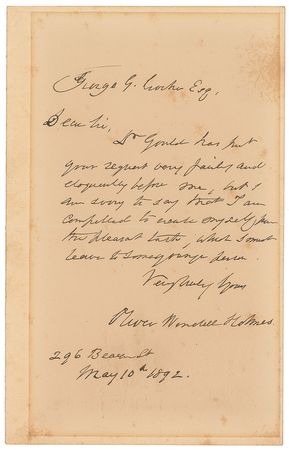 George G. Crocker Esq.
Dear Sir,
Dr Gould has put
your request very fairly and
eloquently before me, but I
am sorry to say that I am
compelled to excuse myself from
the pleasant task, which I must
leave to some younger person.
Very truly yours
Oliver Wendell Holmes.
296 Beacon St
May 10th 1892.